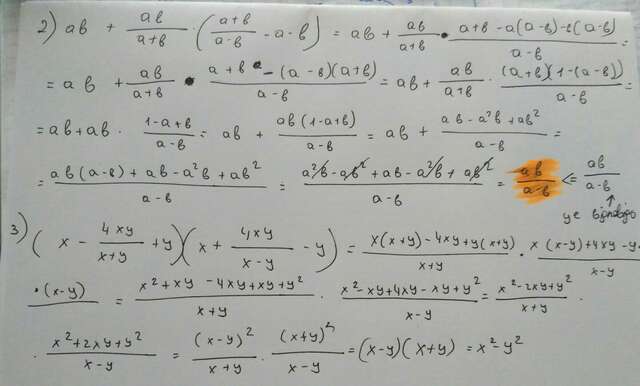 2) ab + ab/(a+b) · ((a+b)/(a-b) - a - b) = ab + ab/(a+b) · (a+b - a(a-b) - b(a-b))/(a-b) =
= ab + ab/(a+b) · (a+b - (a-b)(a+b))/(a-b) = ab + ab/(a+b) · ((a+b)(1-(a-b)))/(a-b) =
= ab + ab · (1-a+b)/(a-b) = ab + ab(1-a+b)/(a-b) = ab + (ab - a²b + ab²)/(a-b) =
= (ab(a-b) + ab - a²b + ab²)/(a-b) = (a²b - ab² + ab - a²b + ab²)/(a-b) = ab/(a-b) <= ab/(a-b)
3) (x - 4xy/(x+y) + y)(x + 4xy/(x-y) - y) = (x(x+y) - 4xy + y(x+y))/(x+y) · (x(x-y) + 4xy - y·
·(x-y))/(x-y) = (x² + xy - 4xy + xy + y²)/(x+y) · (x² - xy + 4xy - xy + y²)/(x-y) = (x² - 2xy + y²)/(x+y) ·
· (x² + 2xy + y²)/(x-y) = (x-y)²/(x+y) · (x+y)²/(x-y) = (x-y)(x+y) = x² - y²